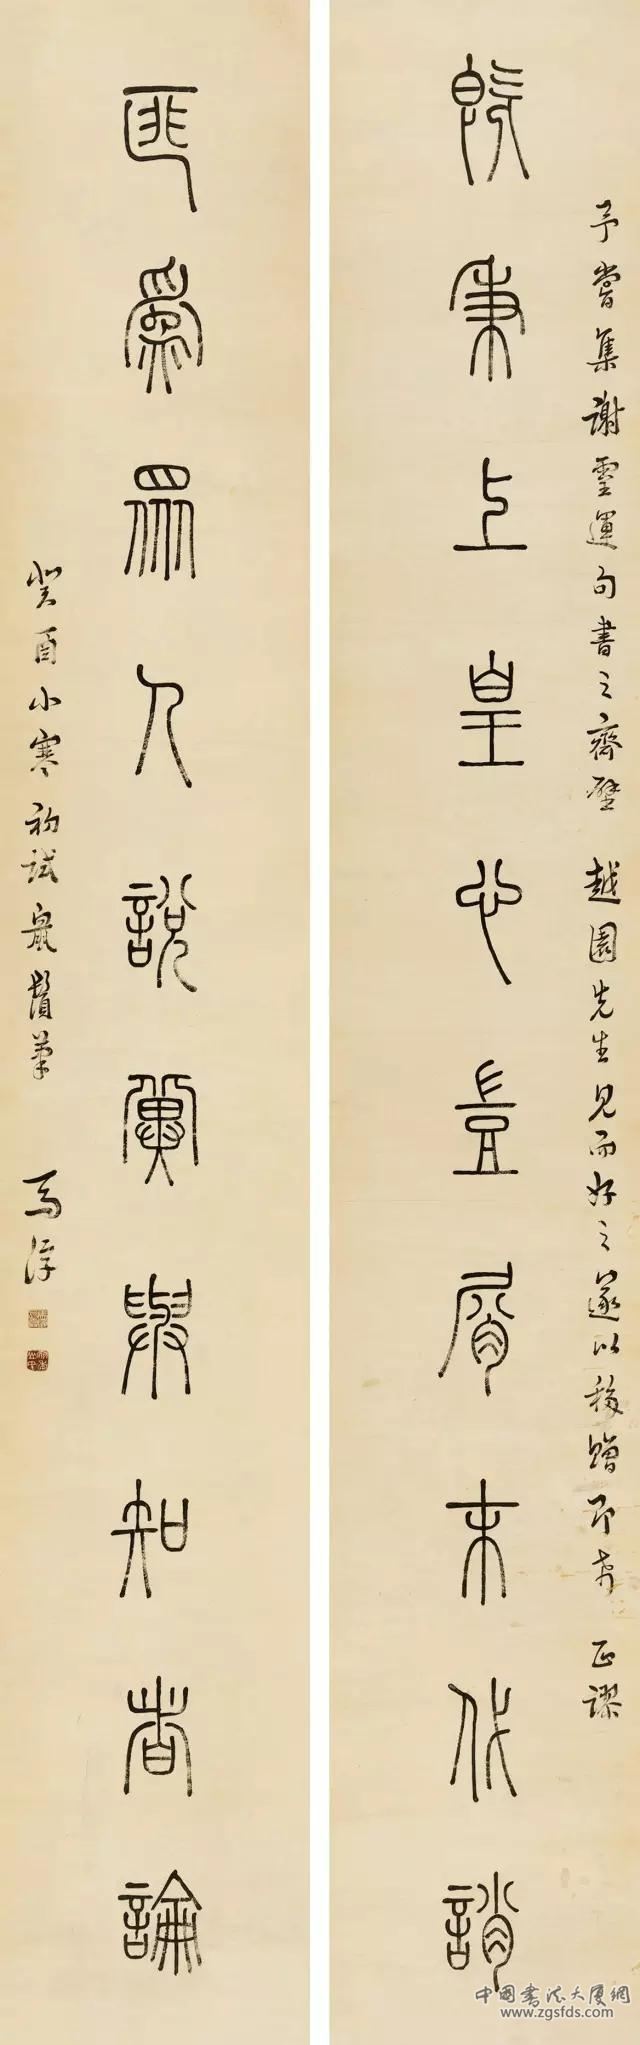 予嘗集謝靈運句書之齋壁 越園先生見而好之遂以移贈即希 正謬
既秉上皇心豈屑末代誚
匪為眾人說冀與知者論
癸酉小寒初試鼠鬚筆 馬浮
中国书法大厦網
www.zgsfds.com